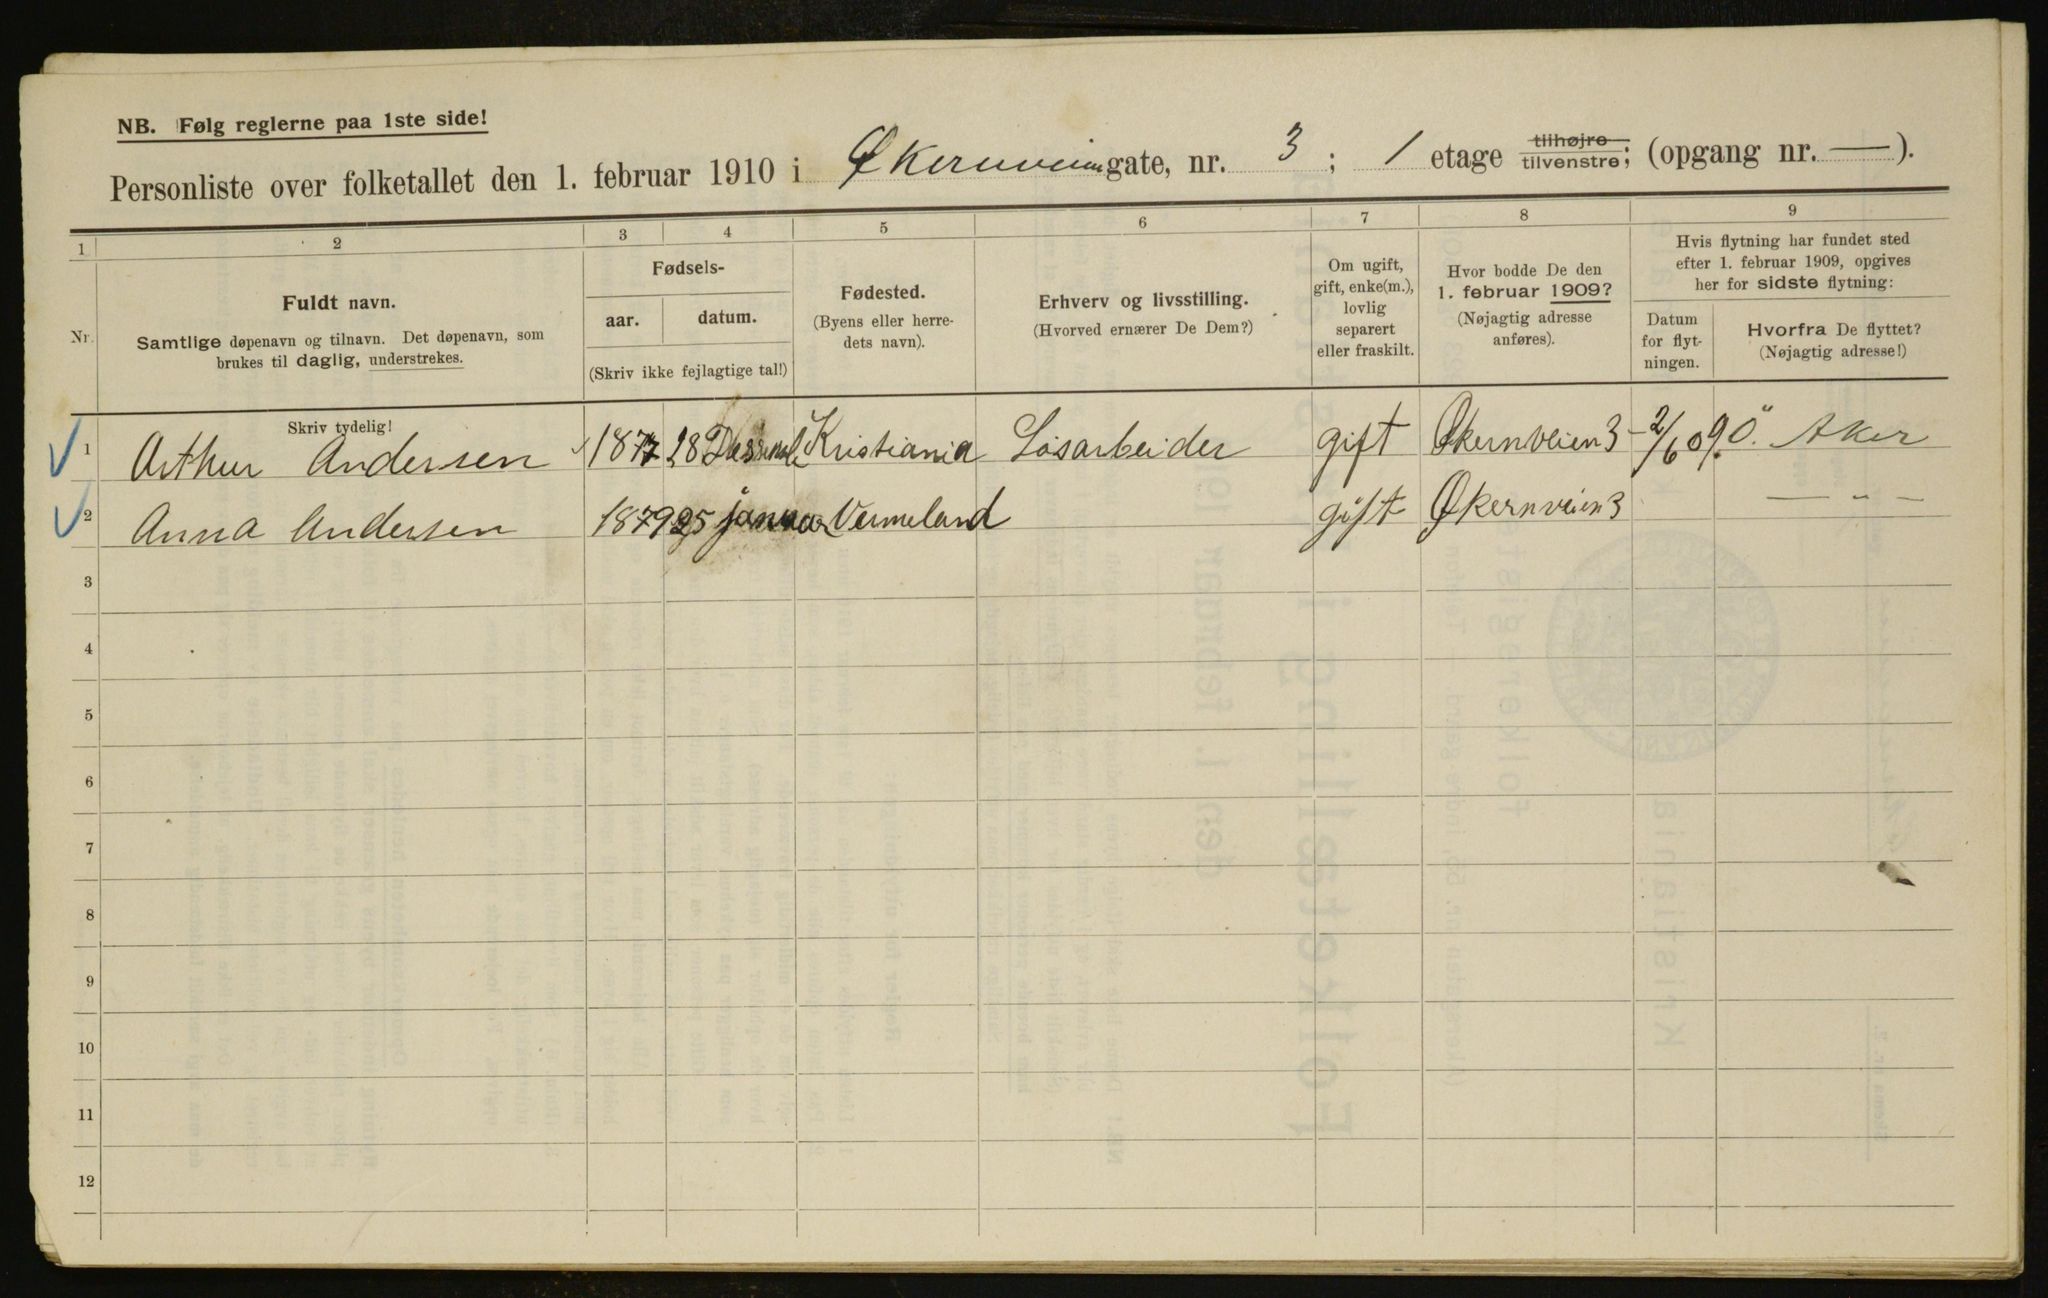 NB. Følg reglerne paa 1ste side!
Personliste over folketallet den 1. februar 1910 i Økernveien gate, nr. 3; 1 etage tilhøjre tilvenstre; (opgang nr. — ).
1 2 3 4 5 6 7 8 9
Nr.
Fuldt navn.
Samtlige døpenavn og tilnavn. Det døpenavn, som
brukes til daglig, understrekes.
Fødsels-
aar. datum.
(Skriv ikke fejlagtige tal!)
Fødested.
(Byens eller herre-
dets navn).
Erhverv og livsstilling.
(Hvorved ernærer De Dem?)
Om ugift,
gift, enke(m.),
lovlig
separert
eller fraskilt.
Hvor bodde De den
1. februar 1909?
(Nøjagtig adresse
anføres).
Hvis flytning har fundet sted
efter 1. februar 1909, opgives
her for sidste flytning:
Datum
for flyt-
ningen.
Hvorfra De flyttet?
(Nøjagtig adresse!)
Skriv tydelig!
1 Arthur Andersen 1877 28 Kristiania Løsarbeider gift Økernveien 3 - 2/6 09. Ö. Aker
2 Anna Andersen 1879 25 januar Vermeland gift Økernveien 3 — " —
3
4
5
6
7
8
9
10
11
12